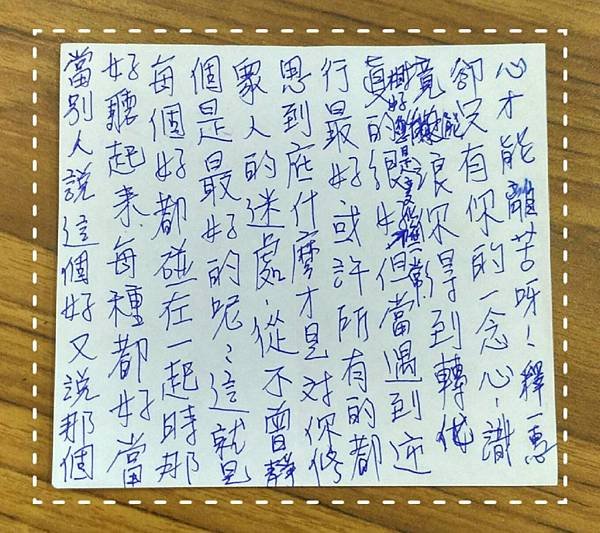 當別人說這個好又說那個
好聽起來每種都好當
每個好都碰在一起時那
個是最好的呢?這就是
眾人的迷處.從不曾靜
思到底什麼才是對你修
行最好或許所有的都
真的很好但當遇到逆
境能你得到轉化
卻只有你的一念心.識
心才能離苦呀!釋一惠